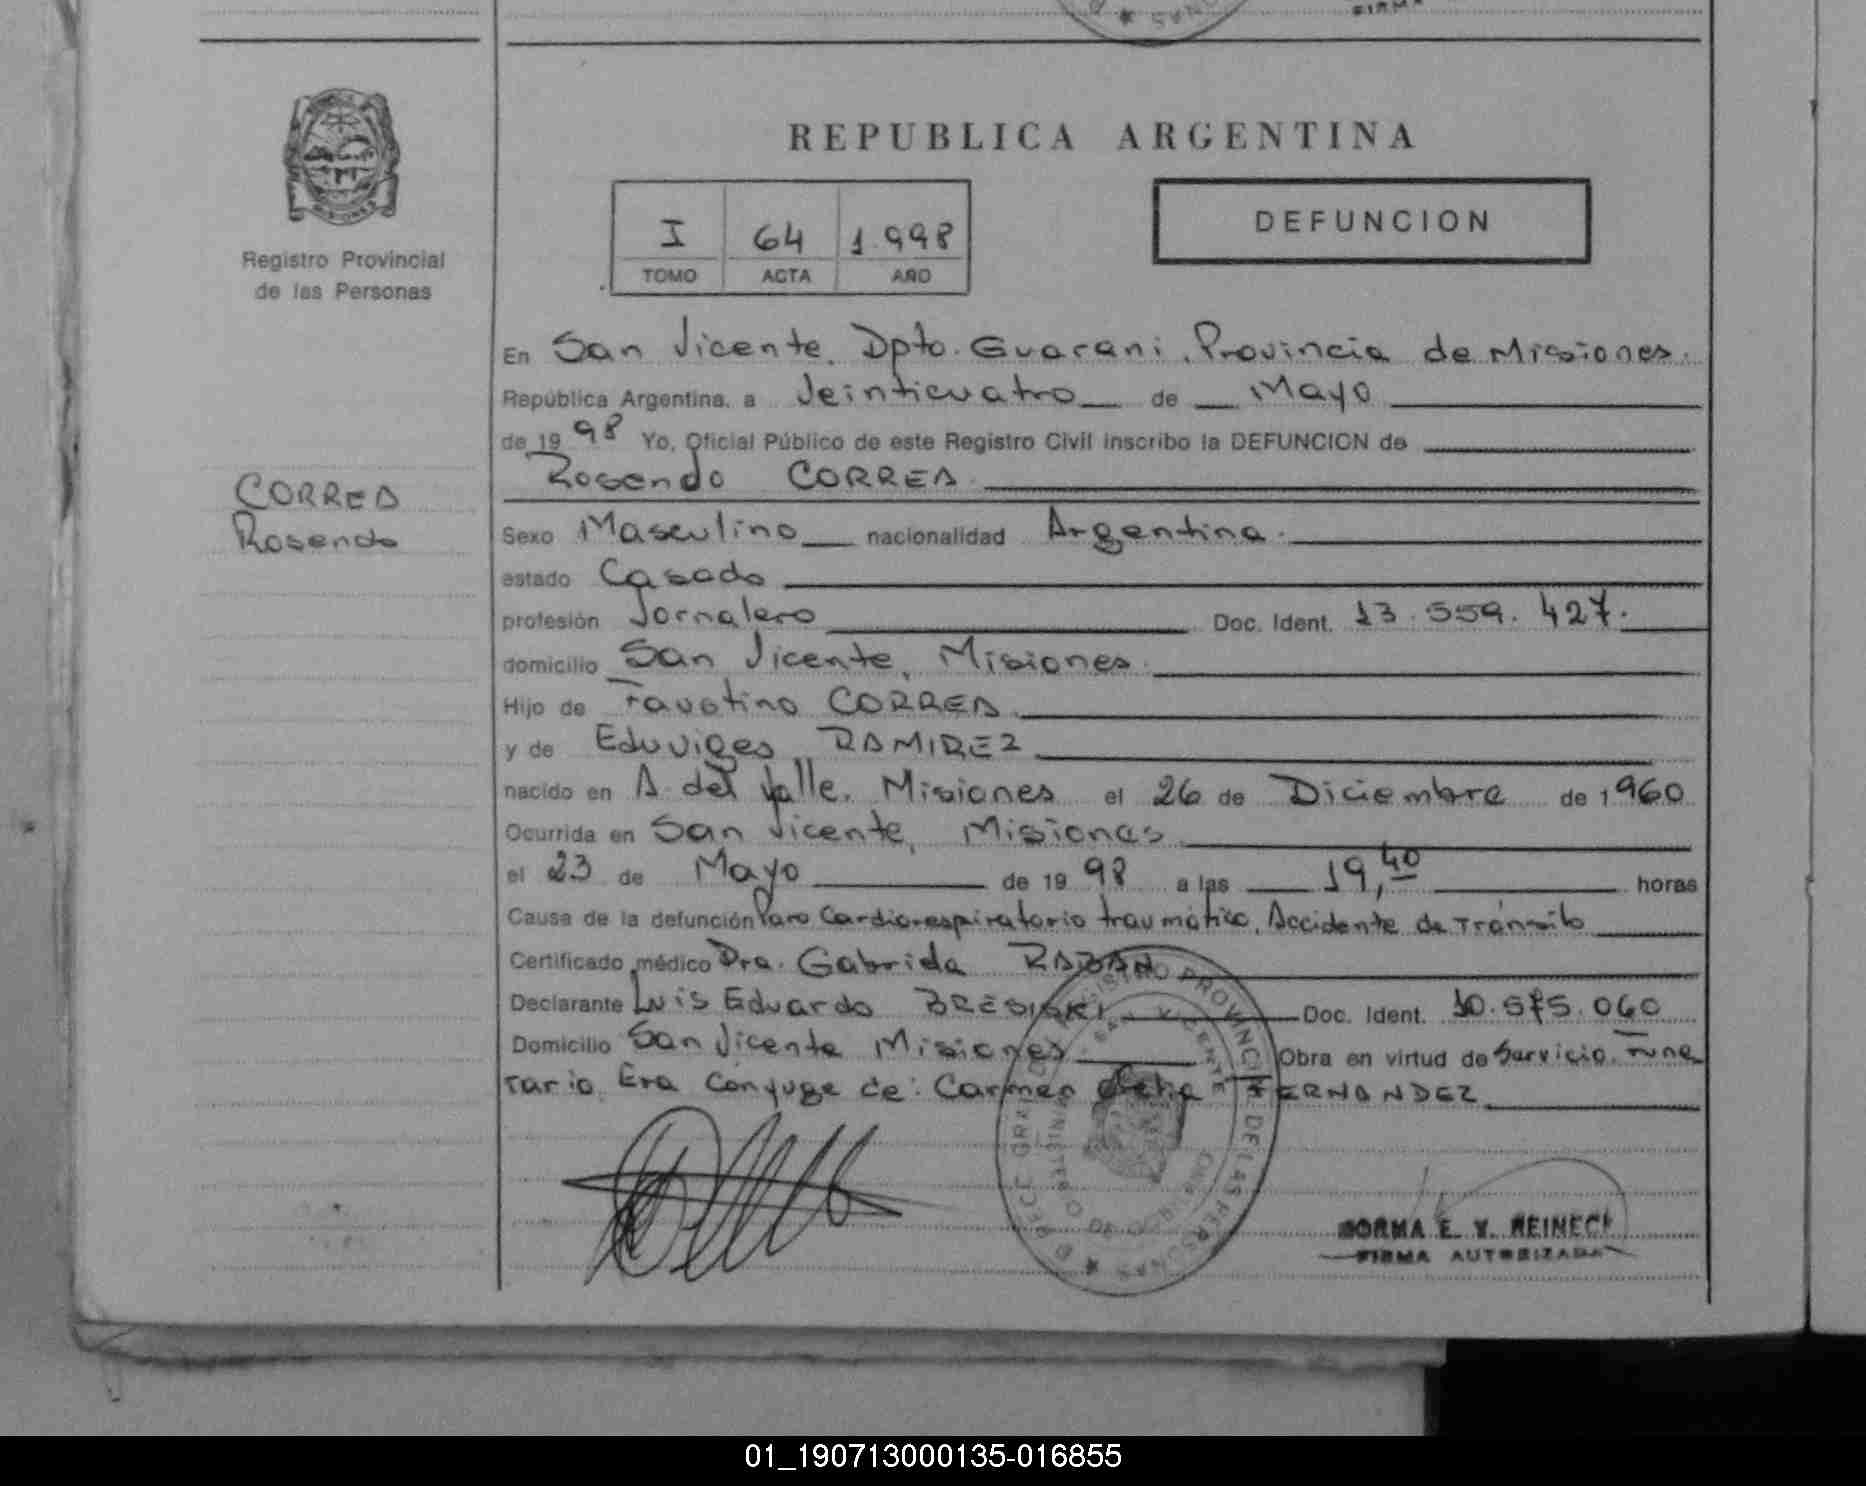 REPUBLICA ARGENTINA
Registro Provincial
de las Personas
I 64 1.998
TOMO ACTA AÑO
DEFUNCION
CORREA
Rosendo
En San Vicente, Dpto. Guarani, Provincia de Misiones.
República Argentina, a Veinticuatro de Mayo
de 1998 Yo, Oficial Público de este Registro Civil inscribo la DEFUNCION de
Rosendo CORREA
Sexo Masculino nacionalidad Argentina.
estado Casado
profesión Jornalero Doc. Ident. 13.559.427.
domicilio San Vicente, Misiones.
Hijo de Faustino CORREA
y de Eduviges RAMIREZ
nacido en A. del Valle, Misiones el 26 de Diciembre de 1960
Ocurrida en San Vicente, Misiones
el 23 de Mayo de 1998 a las 19,40 horas
Causa de la defunción Paro Cardiorespiratorio traumático, Accidente de Tránsito
Certificado médico Dra. Gabriela
Declarante Luis Eduardo BRESISKI Doc. Ident. 10.575.060
Domicilio San Vicente Misiones. Obra en virtud de Servicio Fune
rario. Era Conyuge de: Carmen FERNANDEZ
REGISTRO PROVINCIAL DE LAS PERSONAS
NORMA E. V. REINECK
FIRMA AUTORIZADA
01_190713000135-016855